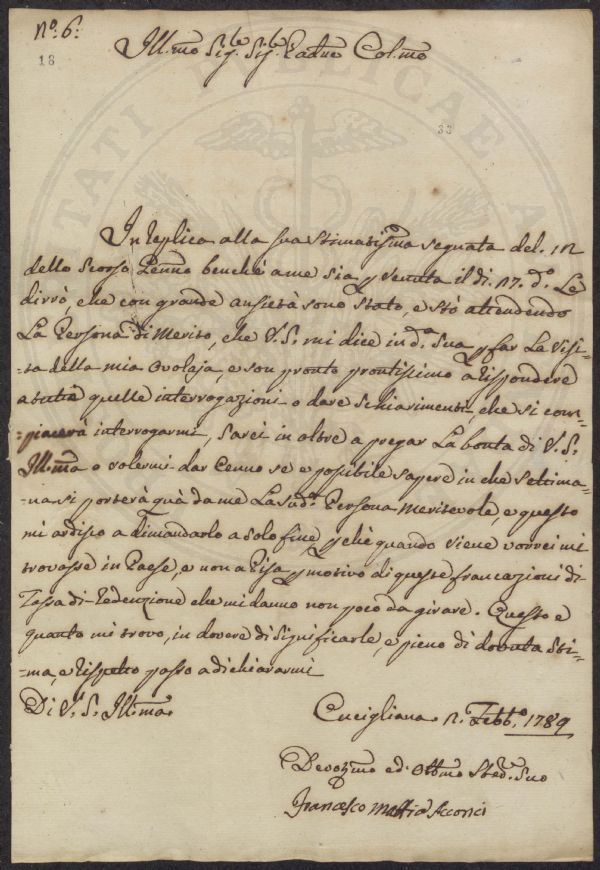 N.º 6:
18
Ill.mo Sig.re Sig.re Padrne Col.mo
33
In replica alla sua stimatis.ma segnata del. 12
dello Scorso Genno benchè a me sia pervenuta il dì. 17. d.º Le
dirrò, che con grande ansietà sono stato, e stò attendendo
La Persona di Merito, che V. S. mi dice in d.ª Sua per far La Visi-
-ta della mia Ovolaja, e son pronto prontissimo a rispondere
a tutte quelle interrogazioni o dare schiarimenti, che si com-
-piacerà interrogarmi, Sarei in oltre a pregar La bontà di V. S.
Ill.ma a volermi dar Cenno se è possibile sapere in che Settima-
-na si porterà quà da me La sud.ª Persona Meritevole, e questo
mi ardisco a dimandarlo a solo fine, perchè quando viene vorrei mi
trovasse in Paese, e non a Pisa per motivo di queste francazioni di
Tassa di Redenzione che mi danno non poco da girare. Questo è
quanto mi trovo, in dovere di Significarle, e pieno di dovuta Sti-
-ma, e rispetto passo a dichiararmi
Di V. S. Ill.ma
Cucigliana 2. Febb.º 1789
Devotmo ed. Obbmo Sred.e Suo
Francesco Mattia Acconci